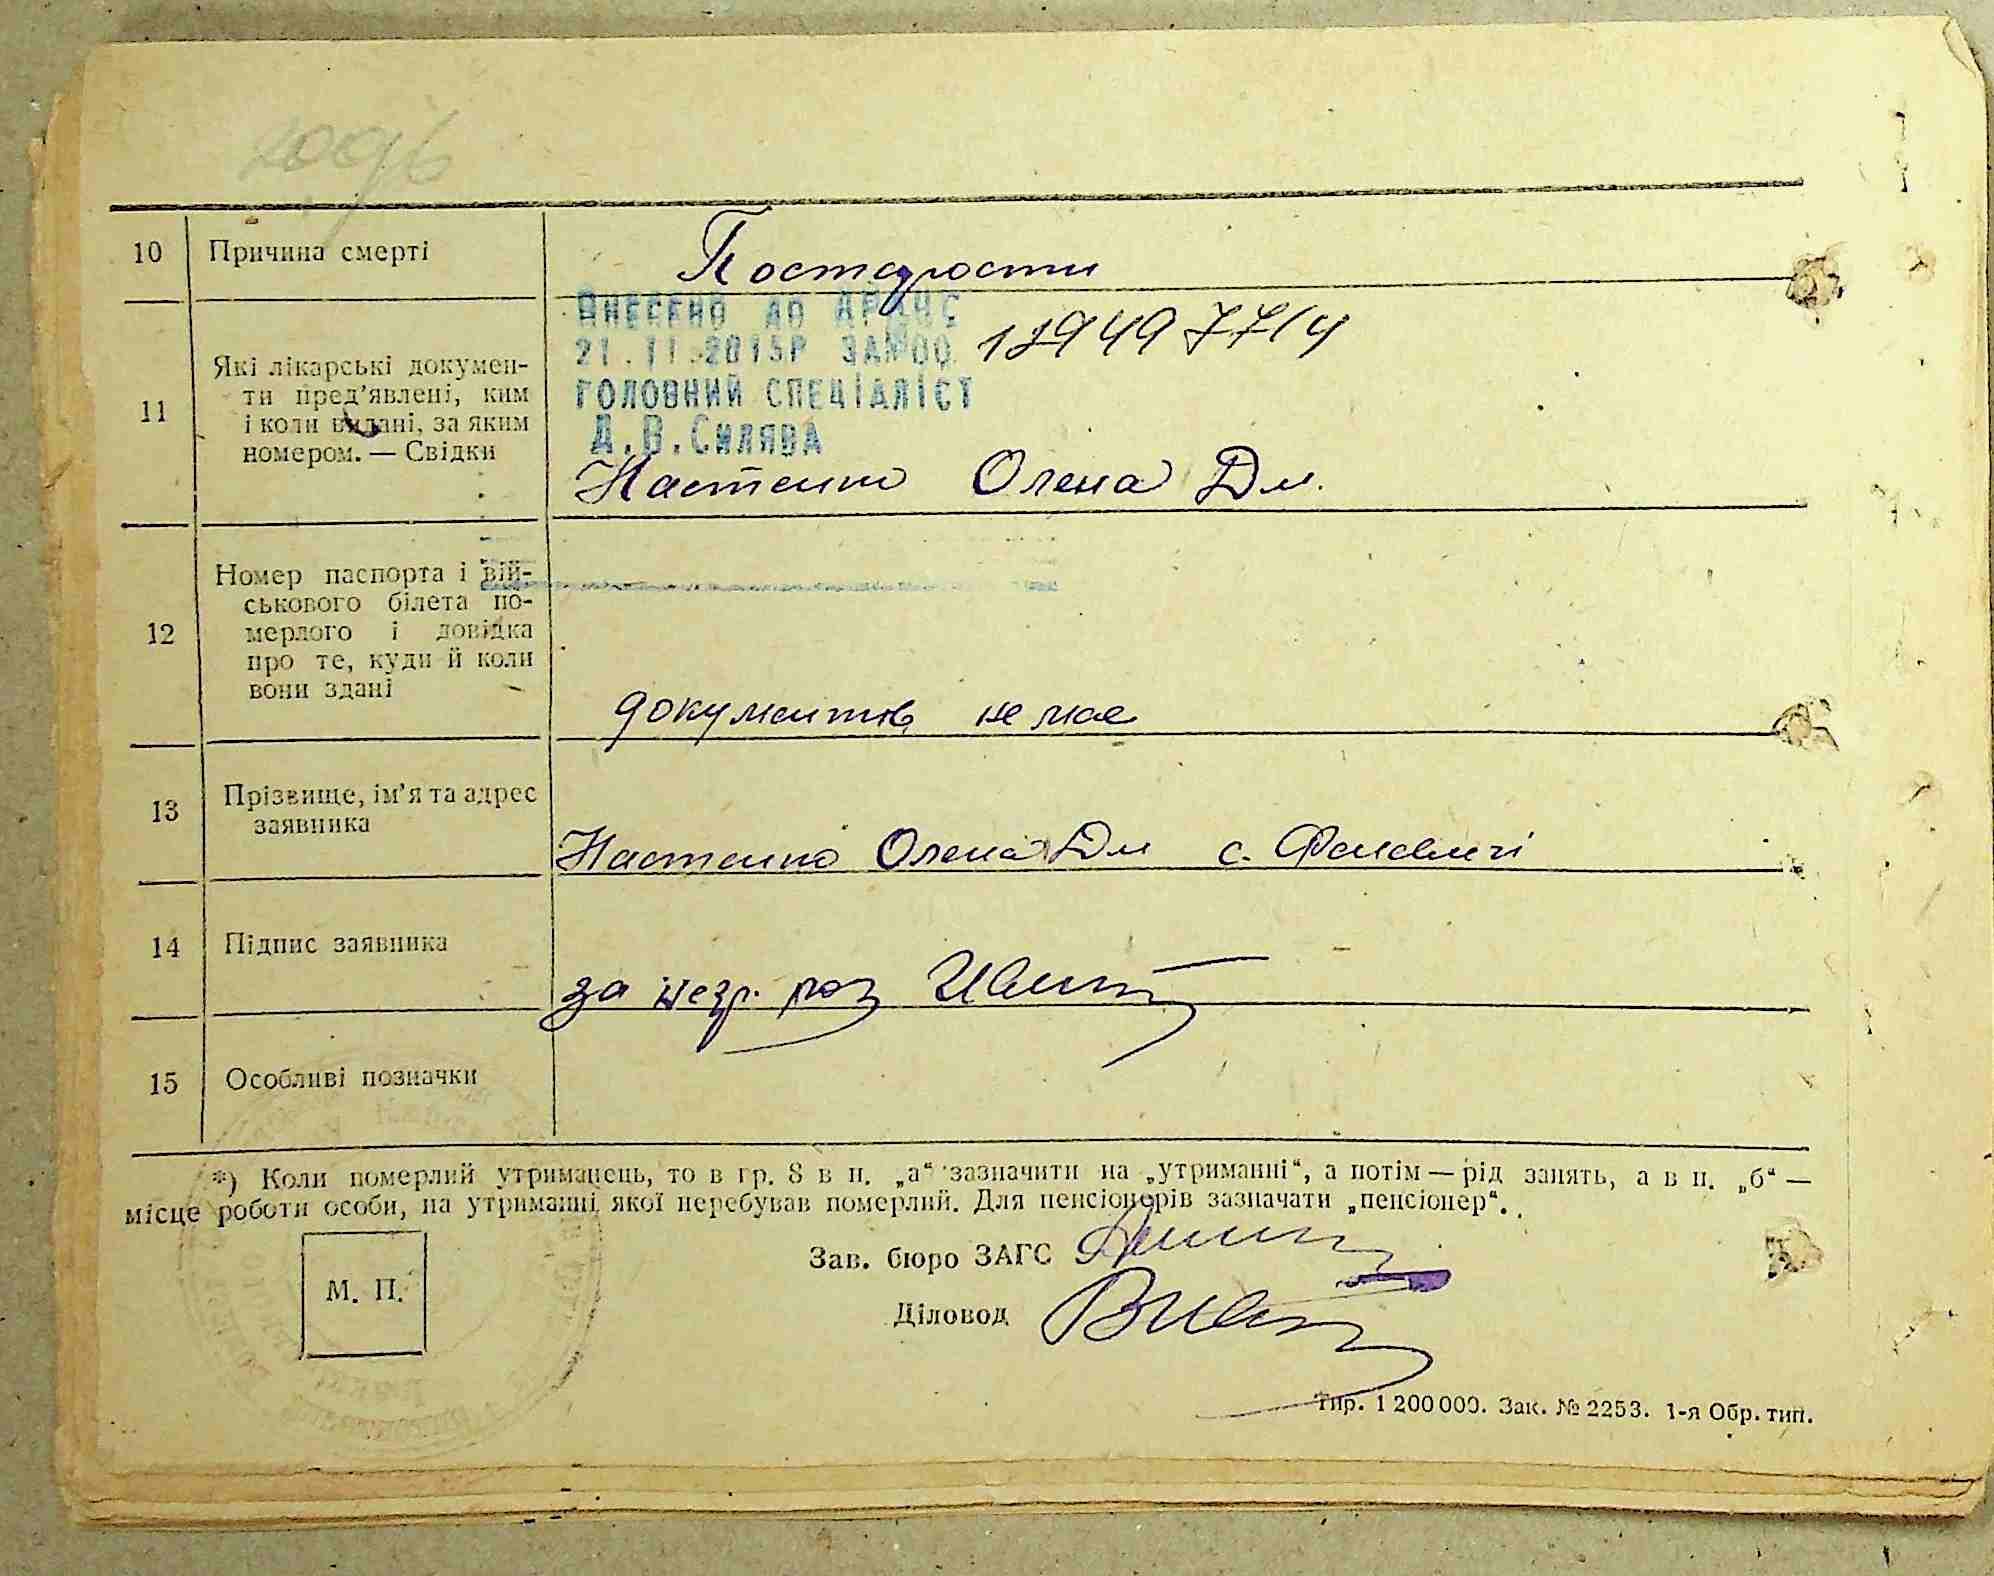 10 Причина смерті По старости
ВНЕСЕНО ДО ДРАЦС
21.11.2015Р ЗА №00
ГОЛОВНИЙ СПЕЦІАЛІСТ
Д.В.Силява
11 Які лікарські докумен-
ти пред’явлені, ким
і коли видані, за яким
номером. — Свідки
Настенко Олена Дм.
12 Номер паспорта і вій-
ськового білета по-
мерлого і довідка
про те, куди й коли
вони здані
документів немає
13 Прізвище, ім’я та адрес
заявника
Настенко Олена Дм с.
14 Підпис заявника
за незр. роз
15 Особливі позначки
*) Коли померлий утриманець, то в гр. 8 в п. „а“ зазначити на „утриманні“, а потім — рід занять, а в п. „б“ —
місце роботи особи, на утриманні якої перебував померлий. Для пенсіонерів зазначати „пенсіонер“.
Зав. бюро ЗАГС
М. П.
Діловод
Тир. 1 200 000. Зак. № 2253. 1-я Обр. тип.